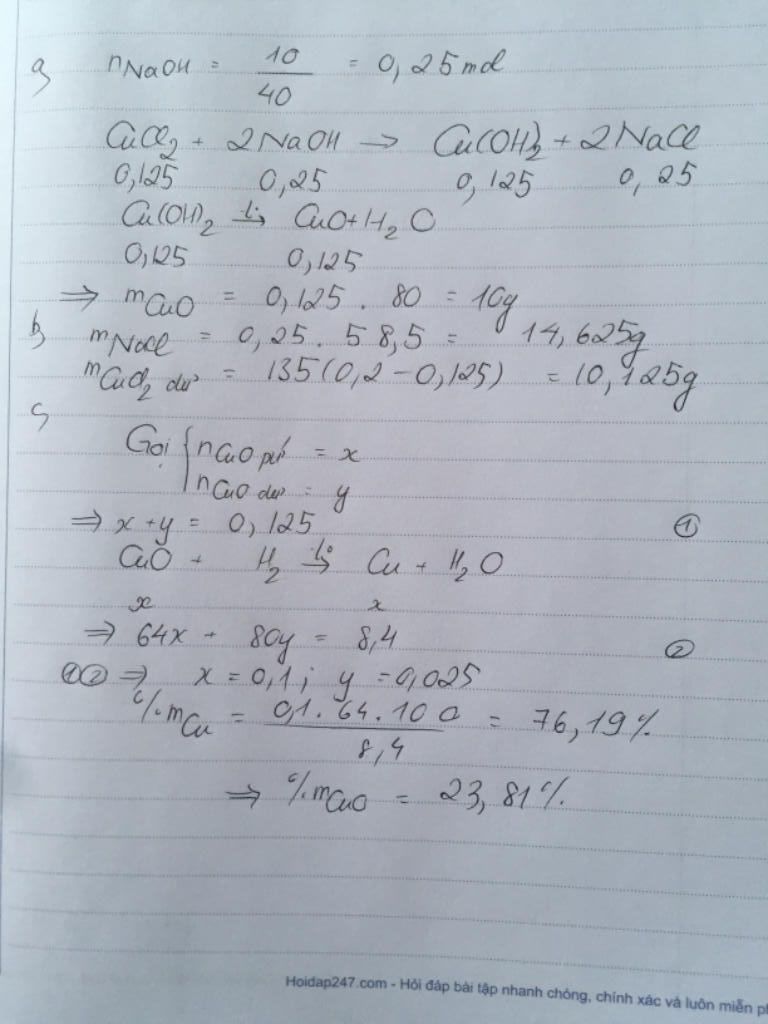 a, nNaOH = 10/40 = 0,25 mol
CuCl2 + 2NaOH → Cu(OH)2 + 2NaCl
0,125 0,25 0,125 0,25
Cu(OH)2 t°→ CuO + H2O
0,125 0,125
⇒ mCuO = 0,125 . 80 = 10g
b, mNaCl = 0,25 . 58,5 = 14,625g
mCuCl2 dư = 135(0,2 - 0,125) = 10,125g
c,
Gọi { nCuO pứ = x
nCuO dư = y
⇒ x + y = 0,125 ①
CuO + H2 t°→ Cu + H2O
x x
⇒ 64x + 80y = 8,4 ②
①② ⇒ x = 0,1 ; y = 0,025
%mCu = 0,1 . 64 . 100 / 8,4 = 76,19%
⇒ %mCuO = 23,81%
Hoidap247.com - Hỏi đáp bài tập nhanh chóng, chính xác và luôn miễn